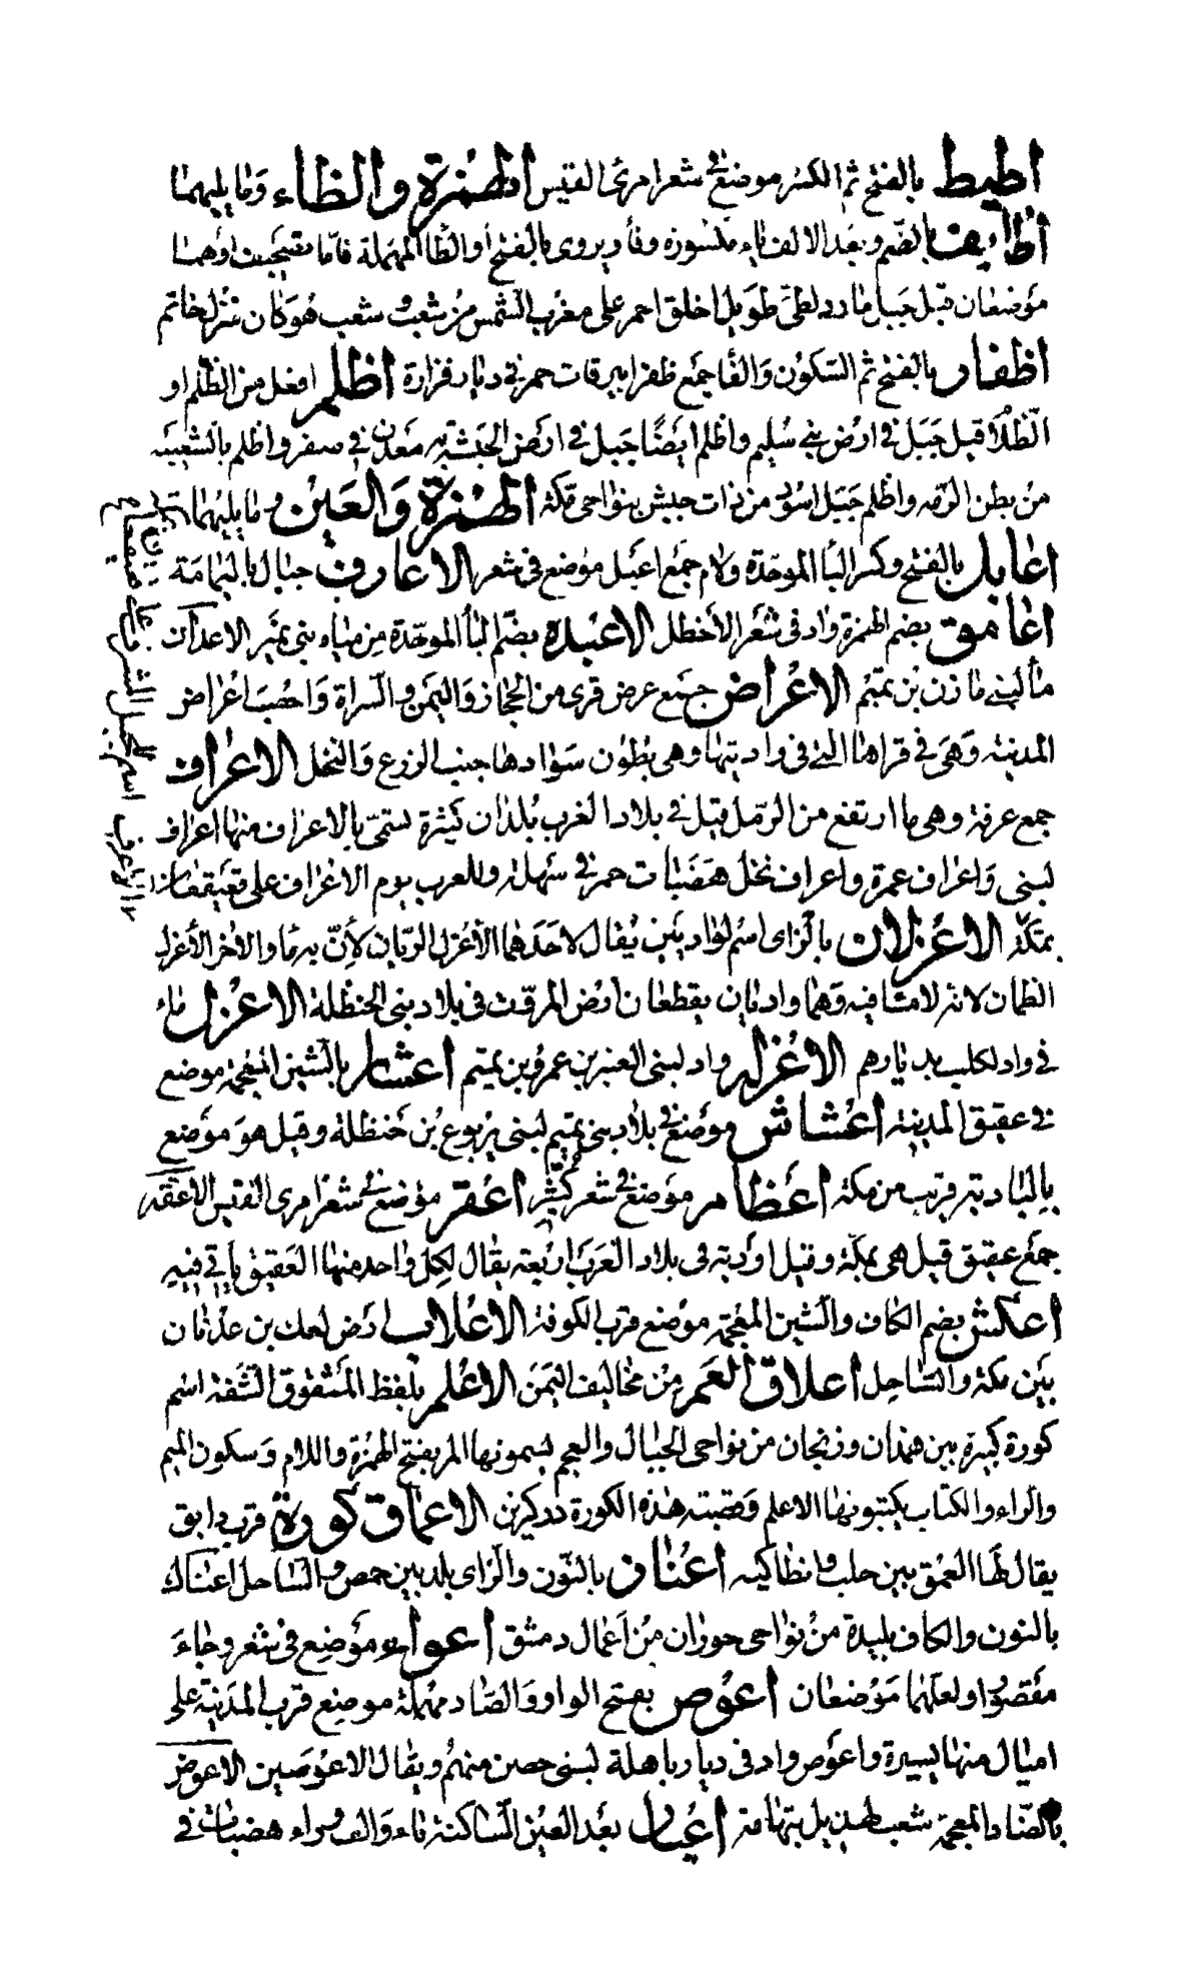 اطيط بالفتح ثم الكسر موضع في شعر امرئ القيس الهمزة والظاء وما يليهما
اظايف بالضم وبعد الالف ياء مكسورة وفاء ويروى بالفتح او الطا المهملة فاما مقبحيت اوهما
موضعان قيل جبل مارد لطي طويل اخلق احمر على مغرب الشمس من شعب و شعب هو كان منزل حاتم
اظفار بالفتح ثم السكون والفا جمع ظفر ابيرقات حمر في ديار فزارة اظلم افعل من الظلم او
الظلا قيل جبل في ارض بني سليم واظلم ايضا جبل في ارض الحبشة به معدن في صفر واظلم بالشعيبة
من بطن الرمه واظلم جبل اسود من ذات حبيش بنواحي مكة الهمزة والعين وما يليهما
اعابل بالفتح وكسر البا الموحدة ولام جمع اعبل موضع في شعر الاعارف جبال باليمامة
اعامق بضم الهمزة واد في شعر الاخطل الاعبده بضم البا الموحدة من مياه بني نمير الاعدان
ما لبني مازن بن تميم الاعراض جمع عرض قرى من الحجاز واليمن والسراة واخصب اعراض
المدينة وهي في قراها التي في اوديتها وهي بطون سوادها حيث الزرع والنخل الاعراف
جمع عرفة وهي ما ارتفع من الرمل قيل في بلاد العرب بلدان كثيرة تسمى بالاعراف منها اعراف
لبنى واعراف عمرة واعراف نخل هضبات حمر في سهلة وللعرب يوم الاعراف على قعيقعان
بمكة الاعزلان بالزاي اسم لواديين يقال لاحدهما الاعزل الريان لان به ما والاخر الاعزل
الظمان لانه لا ما فيه وهما واديان يقطعان ارض المروت في بلاد بني الحنظلة الاعزل ماء
في واد لكلب بديارهم الاعزله واد لبني العنبر بن عمرو بن تميم اعشار بالشين المعجمة موضع
في عقيق المدينة اعشاش موضع في بلاد بني تميم لبني يربوع بن حنظلة وقيل هو موضع
بالبادية قريب من مكة اعظام موضع في شعر كثير اعقر موضع في شعر امرى القيس الاعقه
جمع عقيق قيل هي بمكة وقيل اودية في بلاد العرب اربعة يقال لكل واحد منها العقيق ياتي فيه
اعكش بضم الكاف والشين المعجمة موضع قرب الكوفة الاعلاب ارض لعك بن عدنان
بين مكة والساحل اعلاق العمر من مخاليف اليمن الاعلم بلفظ المشقوق الشفة اسم
كورة كبيرة بين همدان وزنجان من نواحي الجبال والعجم يسمونها المر بفتح الهمزة واللام وسكون الميم
والراء والكتاب يكتبونها الاعلم وقصبته هذه الكورة دركزين الاعماق كورة قرب دابق
يقال لها العمق بين حلب وانطاكيه اعناز بالنون والزاي بلد بين حمص والساحل اعناك
بالنون والكاف بليدة من نواحي حوران من اعمال دمشق اعواء موضع في شعر وجاء
مقصورا ولعلهما موضعان اعوص بفتح الواو والصاد مهملة موضع قرب المدينة على
اميال منها يسيرة واعوص واد في ديار باهلة لبني حصن منهم ويقال الاعوصين الاعوض
بالضاد المعجمة شعب لهذيل بتهامة اعيار بعد العين الساكنة ياء والف وراء هضبات في
الاعرف اسم للجبل المشرف على قعيقعان